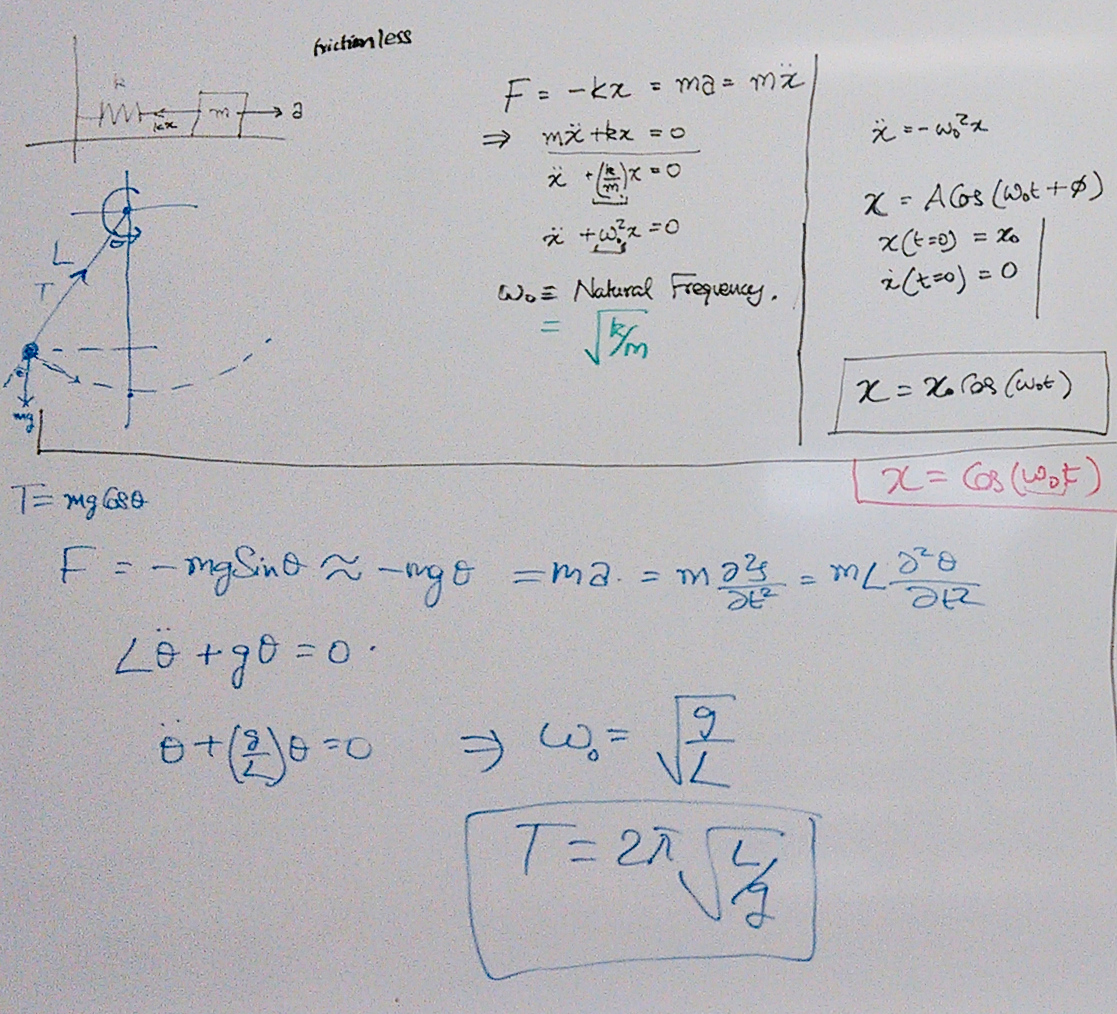 frictionless
k
kx
m
a
F = -kx = ma = mẍ
⇒ mẍ + kx = 0
ẍ + (k/m)x = 0
ẍ + ω₀²x = 0
ω₀ ≡ Natural Frequency.
= √k/m
ẍ = -ω₀²x
x = A Cos (ω₀t + φ)
x(t=0) = x₀
ẋ(t=0) = 0
x = x₀ Cos (ω₀t)
x = Cos (ω₀t)
L
T
θ
θ
mg
T = mg Cosθ
F = -mg Sinθ ≈ -mgθ = ma. = m ∂²s/∂t² = mL ∂²θ/∂t²
Lθ̈ + gθ = 0.
θ̈ + (g/L)θ = 0 ⇒ ω₀ = √g/L
T = 2π √L/g